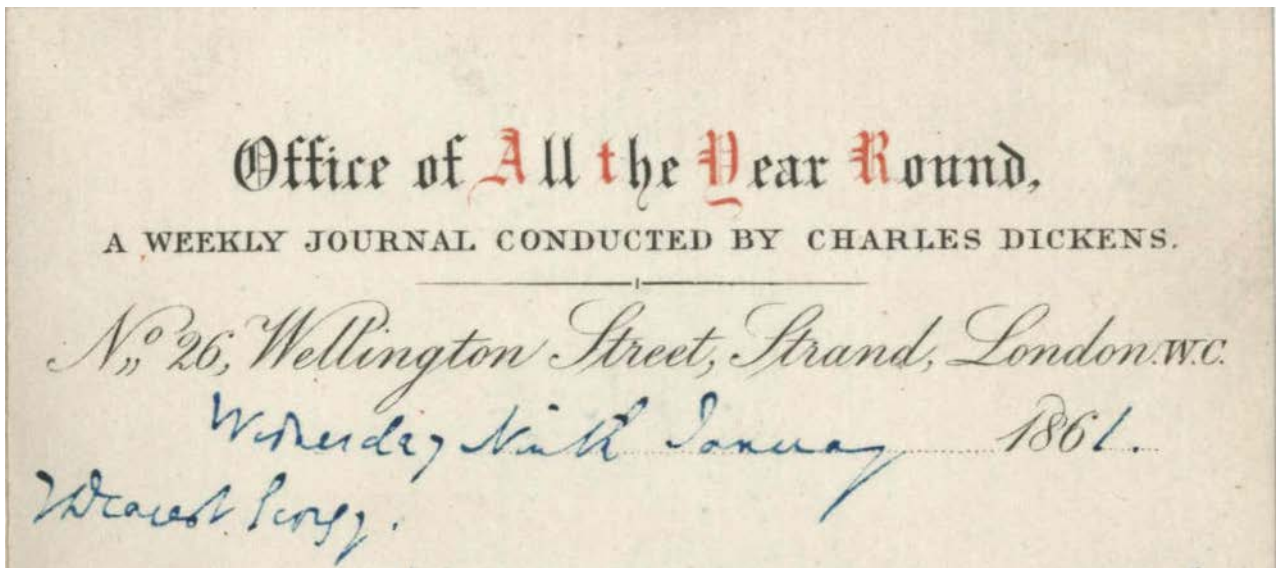 Office of All the Year Round,
A WEEKLY JOURNAL CONDUCTED BY CHARLES DICKENS.
No 26, Wellington Street, Strand, London. W.C.
Wednesday Ninth January 1861.
Dearest Georgy.